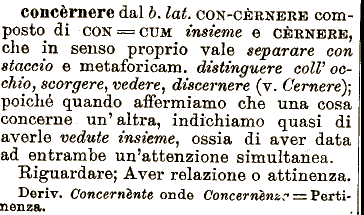 concèrnere dal b. lat. CON-CÈRNERE com-
posto di CON = CUM insieme e CÈRNERE,
che in senso proprio vale separare con
staccio e metaforicam. distinguere coll' oc-
chio, scorgere, vedere, discernere (v. Cernere);
poiché quando affermiamo che una cosa
concerne un' altra, indichiamo quasi di
averle vedute insieme, ossia di aver data
ad entrambe un'attenzione simultanea.
Riguardare; Aver relazione o attinenza.
Deriv. Concernènte onde Concernènza = Perti-
nenza.